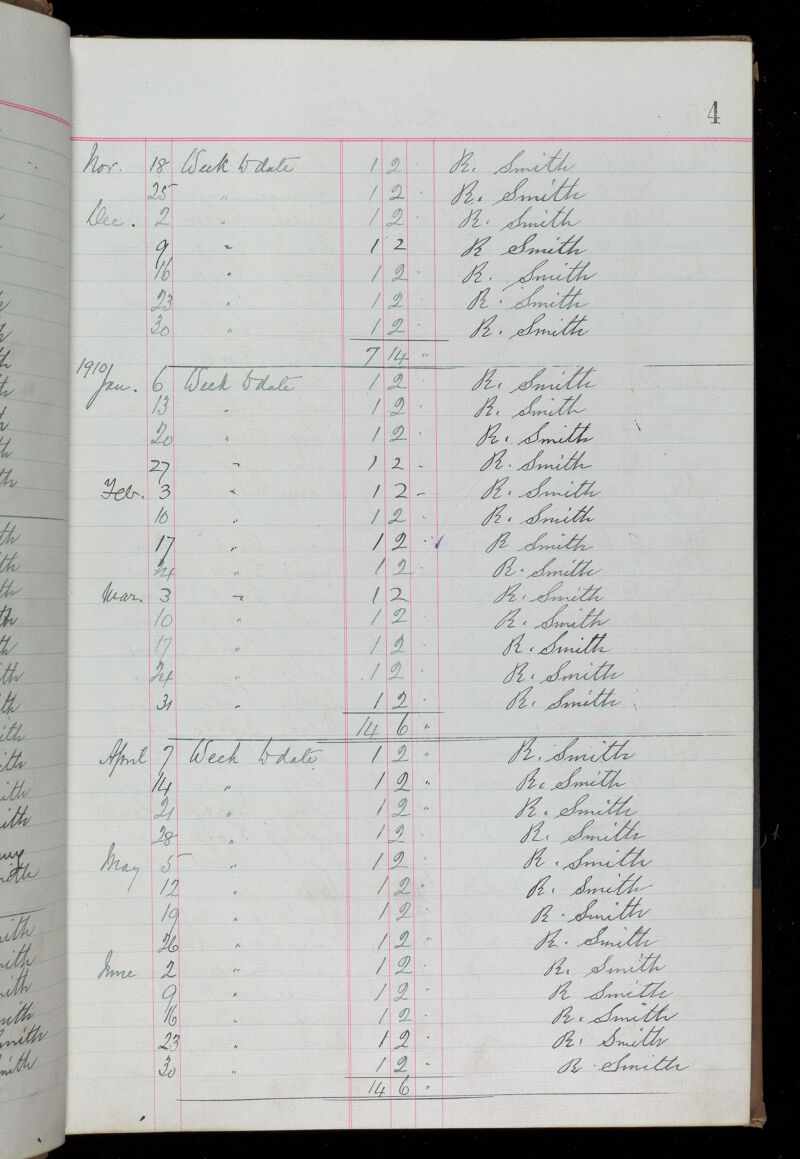 4
Nov. 18 Week to date 1 2 . R. Smith
25 " 1 2 . R. Smith
Dec. 2 " 1 2 . R. Smith
9 " 1 2 R Smith
16 " 1 2 . R. Smith
23 " 1 2 . R. Smith
30 " 1 2 . R. Smith
7 14 "
1910
Jan. 6 Week to date 1 2 . R. Smith
13 " 1 2 . R. Smith
20 " 1 2 . R. Smith
27 " 1 2 - R. Smith
Feb. 3 " 1 2 - R. Smith
10 " 1 2 " R. Smith
17 " 1 2 " R Smith
24 " 1 2 . R. Smith
Mar. 3 " 1 2 R. Smith
10 " 1 2 . R. Smith
17 " 1 2 . R. Smith
24 " 1 2 . R. Smith
31 " 1 2 . R. Smith
14 6 "
April 7 Week to date 1 2 " R. Smith
14 " 1 2 " R. Smith
21 " 1 2 " R. Smith
28 " 1 2 . R. Smith
May 5 " 1 2 . R. Smith
12 " 1 2 . R. Smith
19 " 1 2 . R. Smith
26 " 1 2 " R. Smith
June 2 " 1 2 . R. Smith
9 " 1 2 . R Smith
16 " 1 2 . R. Smith
23 " 1 2 . R. Smith
30 " 1 2 . R. Smith
14 6 "